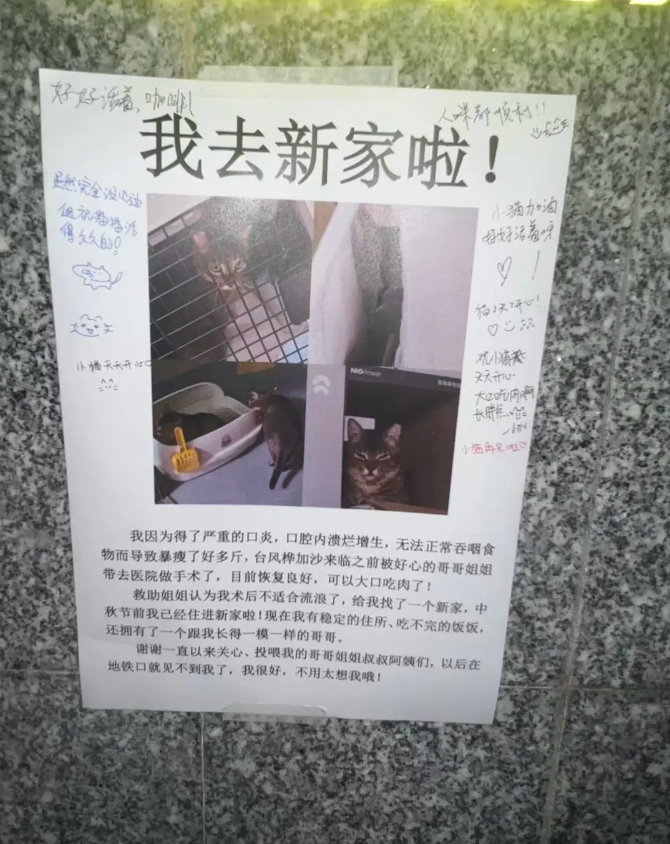 好好活着,咖啡
人咪都顺利!!
我去新家啦!
虽然完全没见过
但祝猫猫活
得久久的!
小猫加油
好好活着呀
小猫天天开心
天天开心
大口吃肉啊
NIO Power
我因为得了严重的口炎，口腔内溃烂增生，无法正常吞咽食
物而导致暴瘦了好多斤，台风桦加沙来临之前被好心的哥哥姐姐
带去医院做手术了，目前恢复良好，可以大口吃肉了！
救助姐姐认为我术后不适合流浪了，给我找了一个新家，中
秋节前我已经住进新家啦！现在我有稳定的住所、吃不完的饭饭，
还拥有了一个跟我长得一模一样的哥哥。
谢谢一直以来关心、投喂我的哥哥姐姐叔叔阿姨们，以后在
地铁口就见不到我了，我很好，不用太想我哦！